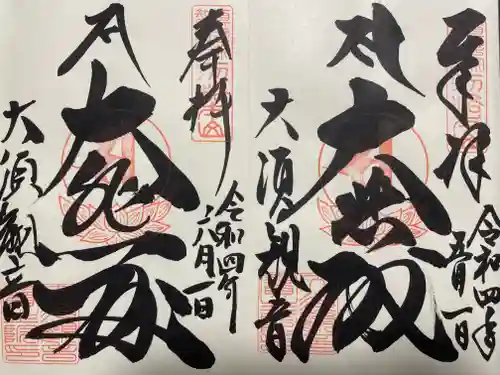 奉拝
令和四年
五月一日
大悲殿
大須観音
奉拝
令和四年
八月一日
大悲殿
大須観音